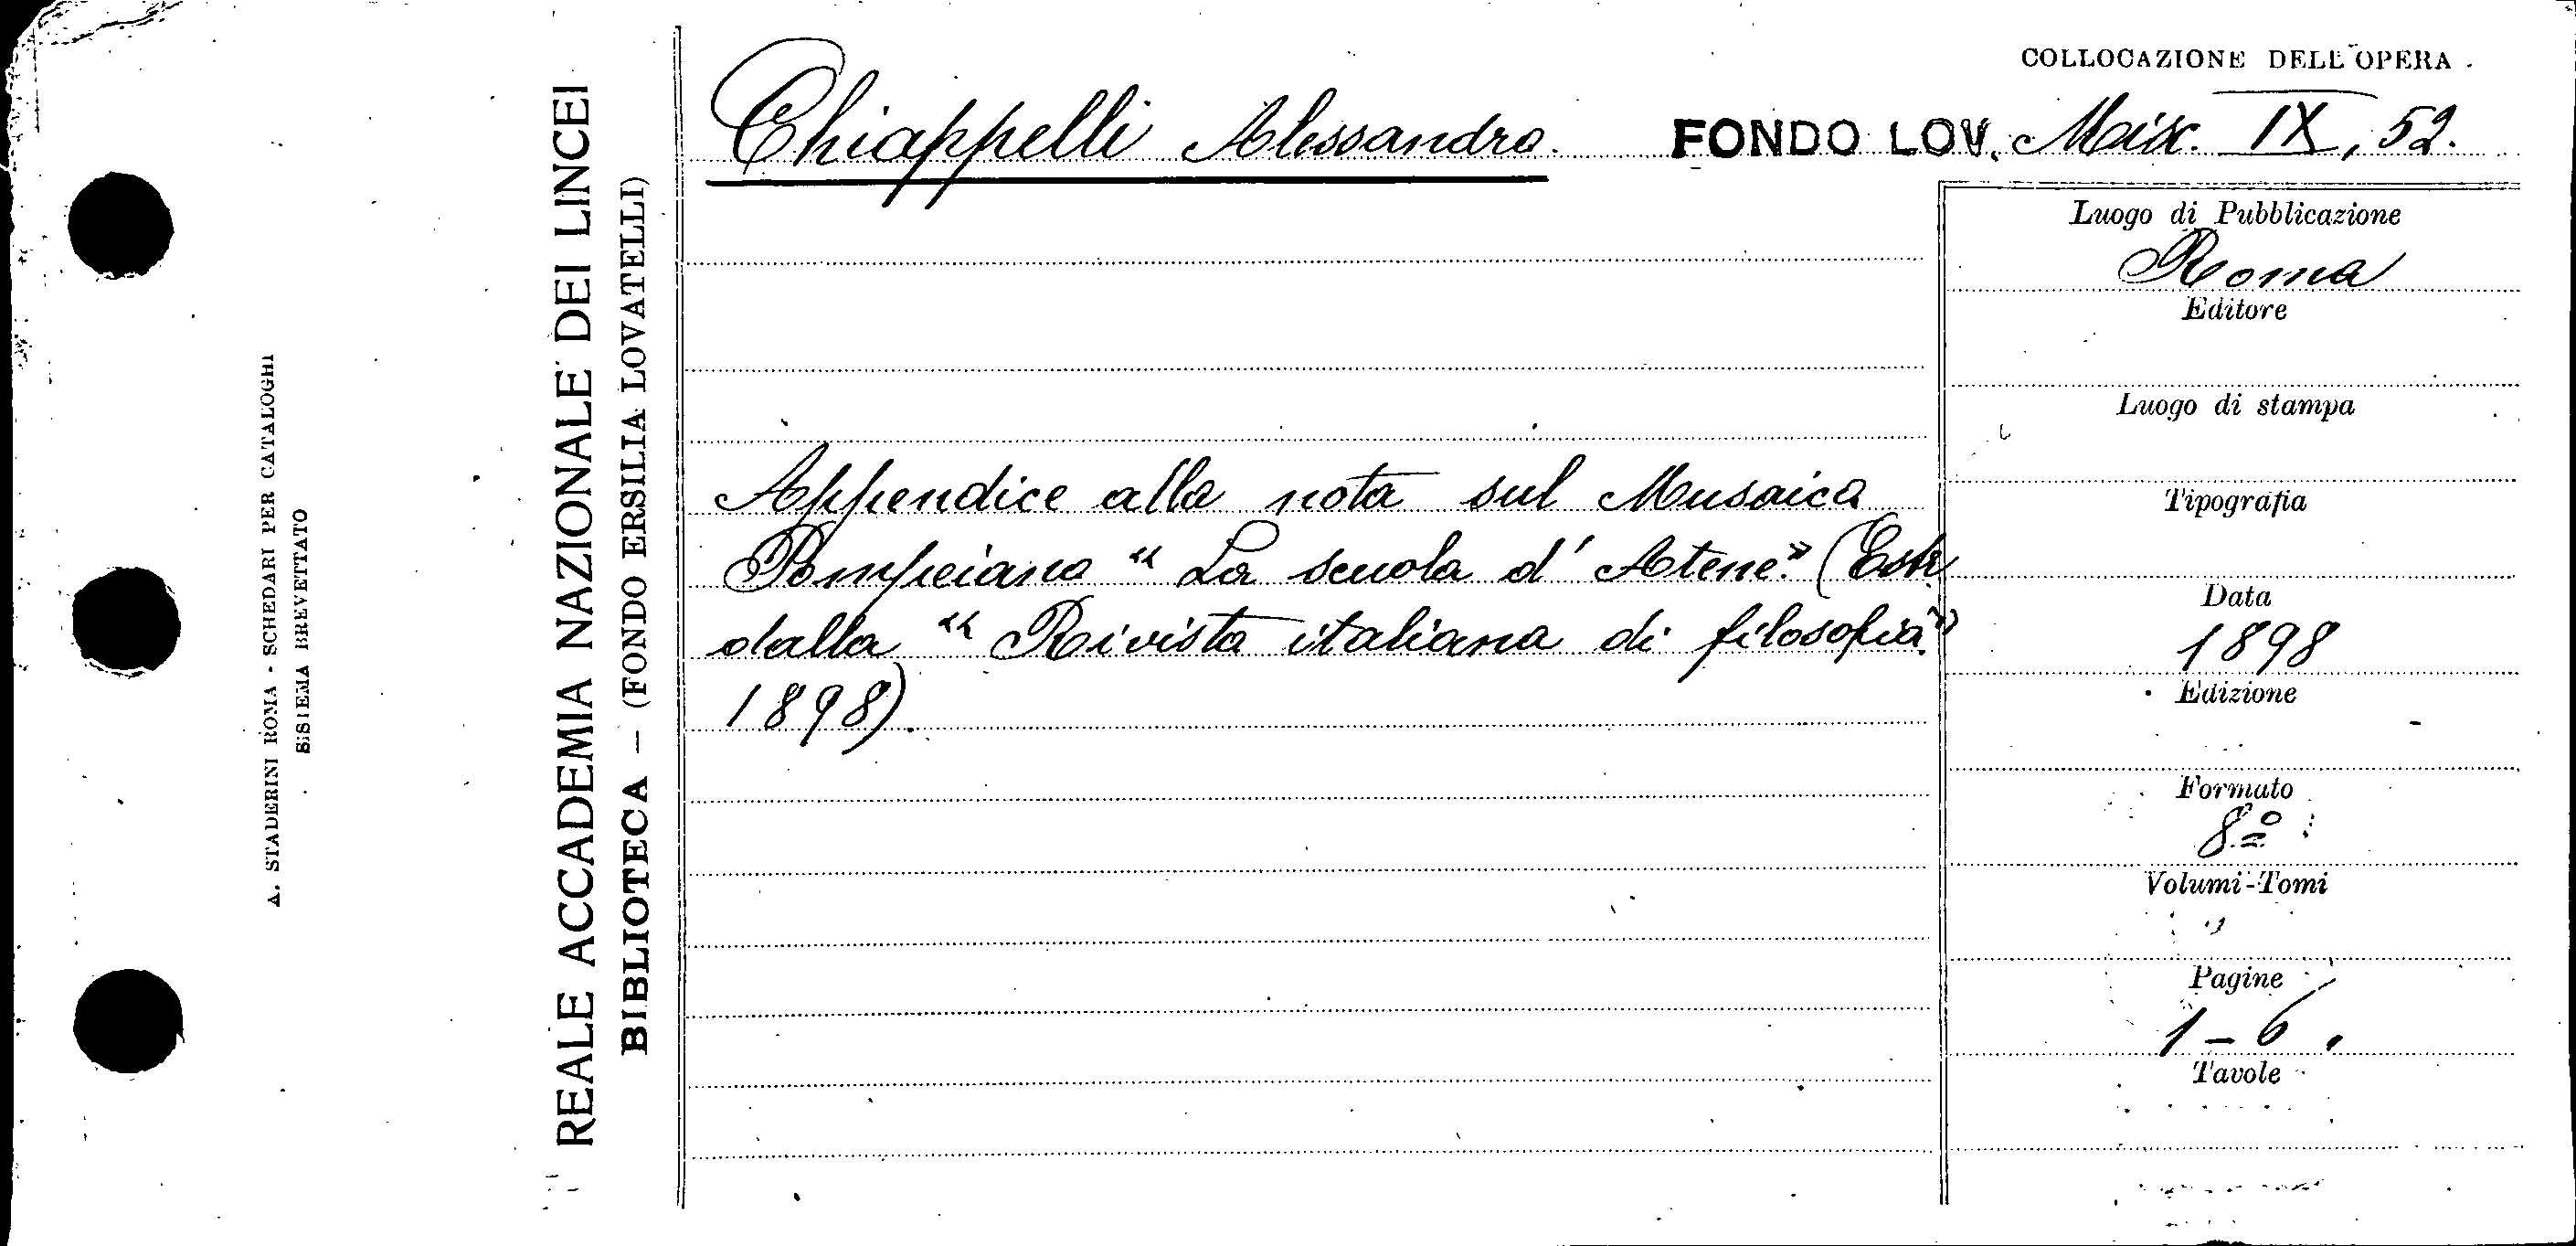 A. STADERINI ROMA - SCHEDARI PER CATALOGHI
SISTEMA BREVETTATO
REALE ACCADEMIA NAZIONALE DEI LINCEI
BIBLIOTECA — (FONDO ERSILIA LOVATELLI)
COLLOCAZIONE DELL'OPERA
Chiappelli Alessandro. FONDO LOV. Misc. IX, 52.
Luogo di Pubblicazione
Roma
Editore
Luogo di stampa
Tipografia
Data
1898
Edizione
Formato
8º
Volumi-Tomi
Pagine
1-6.
Tavole
Appendice alla nota sul Musaico
Pompeiano "La scuola d'Atene." (Estr.
dalla "Rivista italiana di filosofia."
1898).